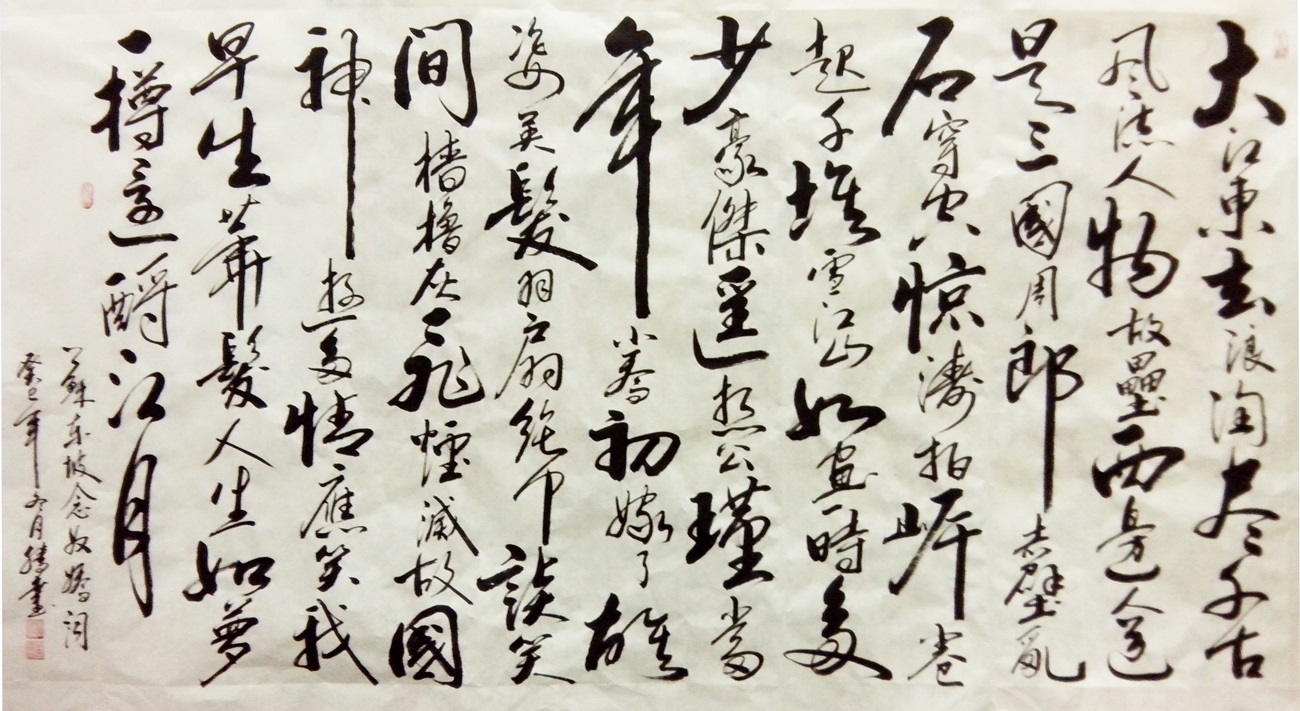 大江東去浪淘尽千古
风流人物故壘西邊人道
是三國周郎赤壁亂
石穿空惊濤拍岸卷
起千堆雪江山如畫一時多
少豪傑遥想公瑾當
年小喬初嫁了雄
姿英髮羽扇纶巾談笑
間檣櫓灰飛煙滅故國
神遊多情應笑我
早生華髮人生如夢
一樽還酹江月
蘇東坡念奴嬌詞
癸巳年冬月書